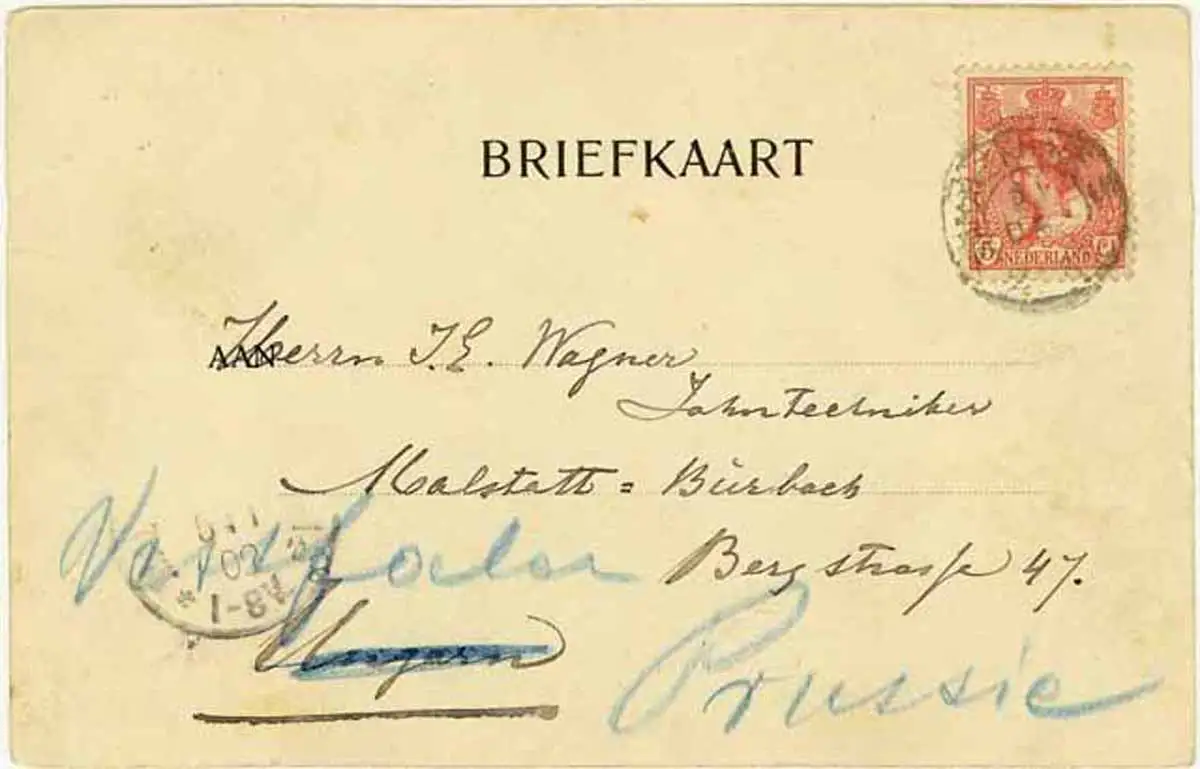 BRIEFKAART
5 Ct
NEDERLAND
AAN Herrn J. E. Wagner
Zahntechniker
Malstatt = Bürbach
Bergstrasse 47.
Ungarn
Prussie
8-1